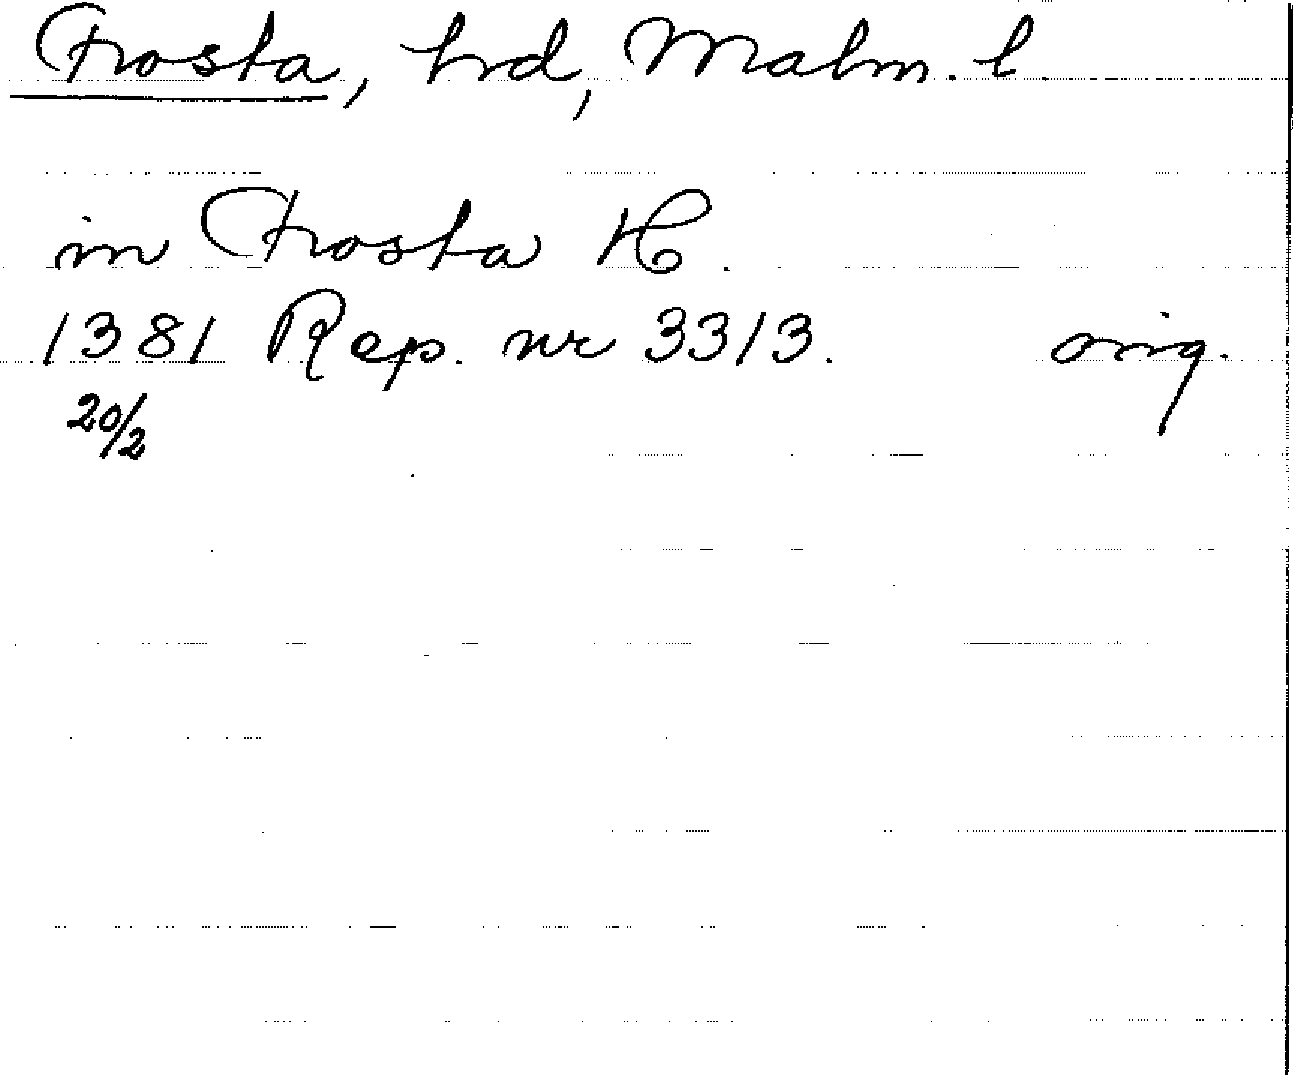 Frosta, hrd, Malm. l.
in Frosta H.
1381 Rep. nr 3313. orig.
20/2